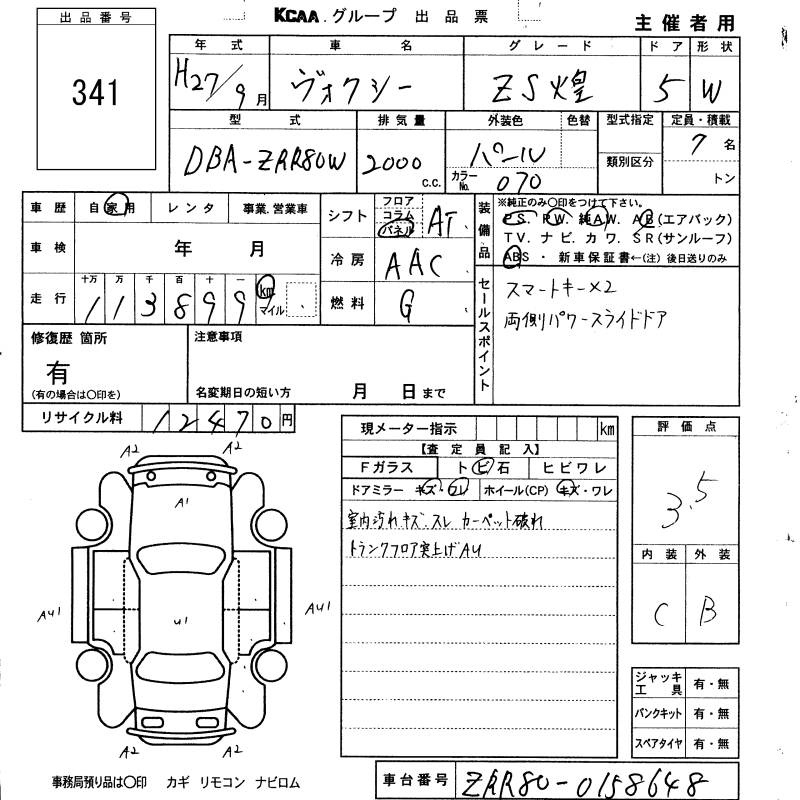 KCAA.グループ 出品票
主催者用
出品番号
341
年式 車名 グレード ドア 形状
H27/9月 ヴォクシー ZS煌 5 W
型式 排気量 外装色 色替 型式指定 定員・積載
DBA-ZRR80W 2000c.c. パール 7名
カラーNo. 070 類別区分 トン
車歴 自家用 レンタ 事業.営業車
車検 年 月
走行 十万 万 千 百 十 一
113899 km マイル
シフト フロア コラム パネル AT
冷房 AAC
燃料 G
装備品
※純正のみ〇印をつけて下さい。
PS. PW. 純AW. AB(エアバック)
TV. ナビ. カワ. SR(サンルーフ)
ABS ・ 新車保証書←(注)後日送りのみ
セールスポイント
スマートキー×2
両側パワースライドドア
修復歴 箇所
有
(有の場合は〇印を)
注意事項
名変期日の短い方 月 日まで
リサイクル料 12470円
現メーター指示 km
【査定員記入】
Fガラス トビ石 ヒビワレ
ドアミラー キズ・ワレ ホイール(CP) キズ・ワレ
室内汚れキズ.スレ カーペット破れ
トランクフロア突上げAU
評価点
3.5
内装 外装
C B
ジャッキ工具 有・無
パンクキット 有・無
スペアタイヤ 有・無
A2 A2
A1
AU1 U1 AU1
A2 A2
事務局預り品は〇印 カギ リモコン ナビロム
車台番号 ZRR80-0158648